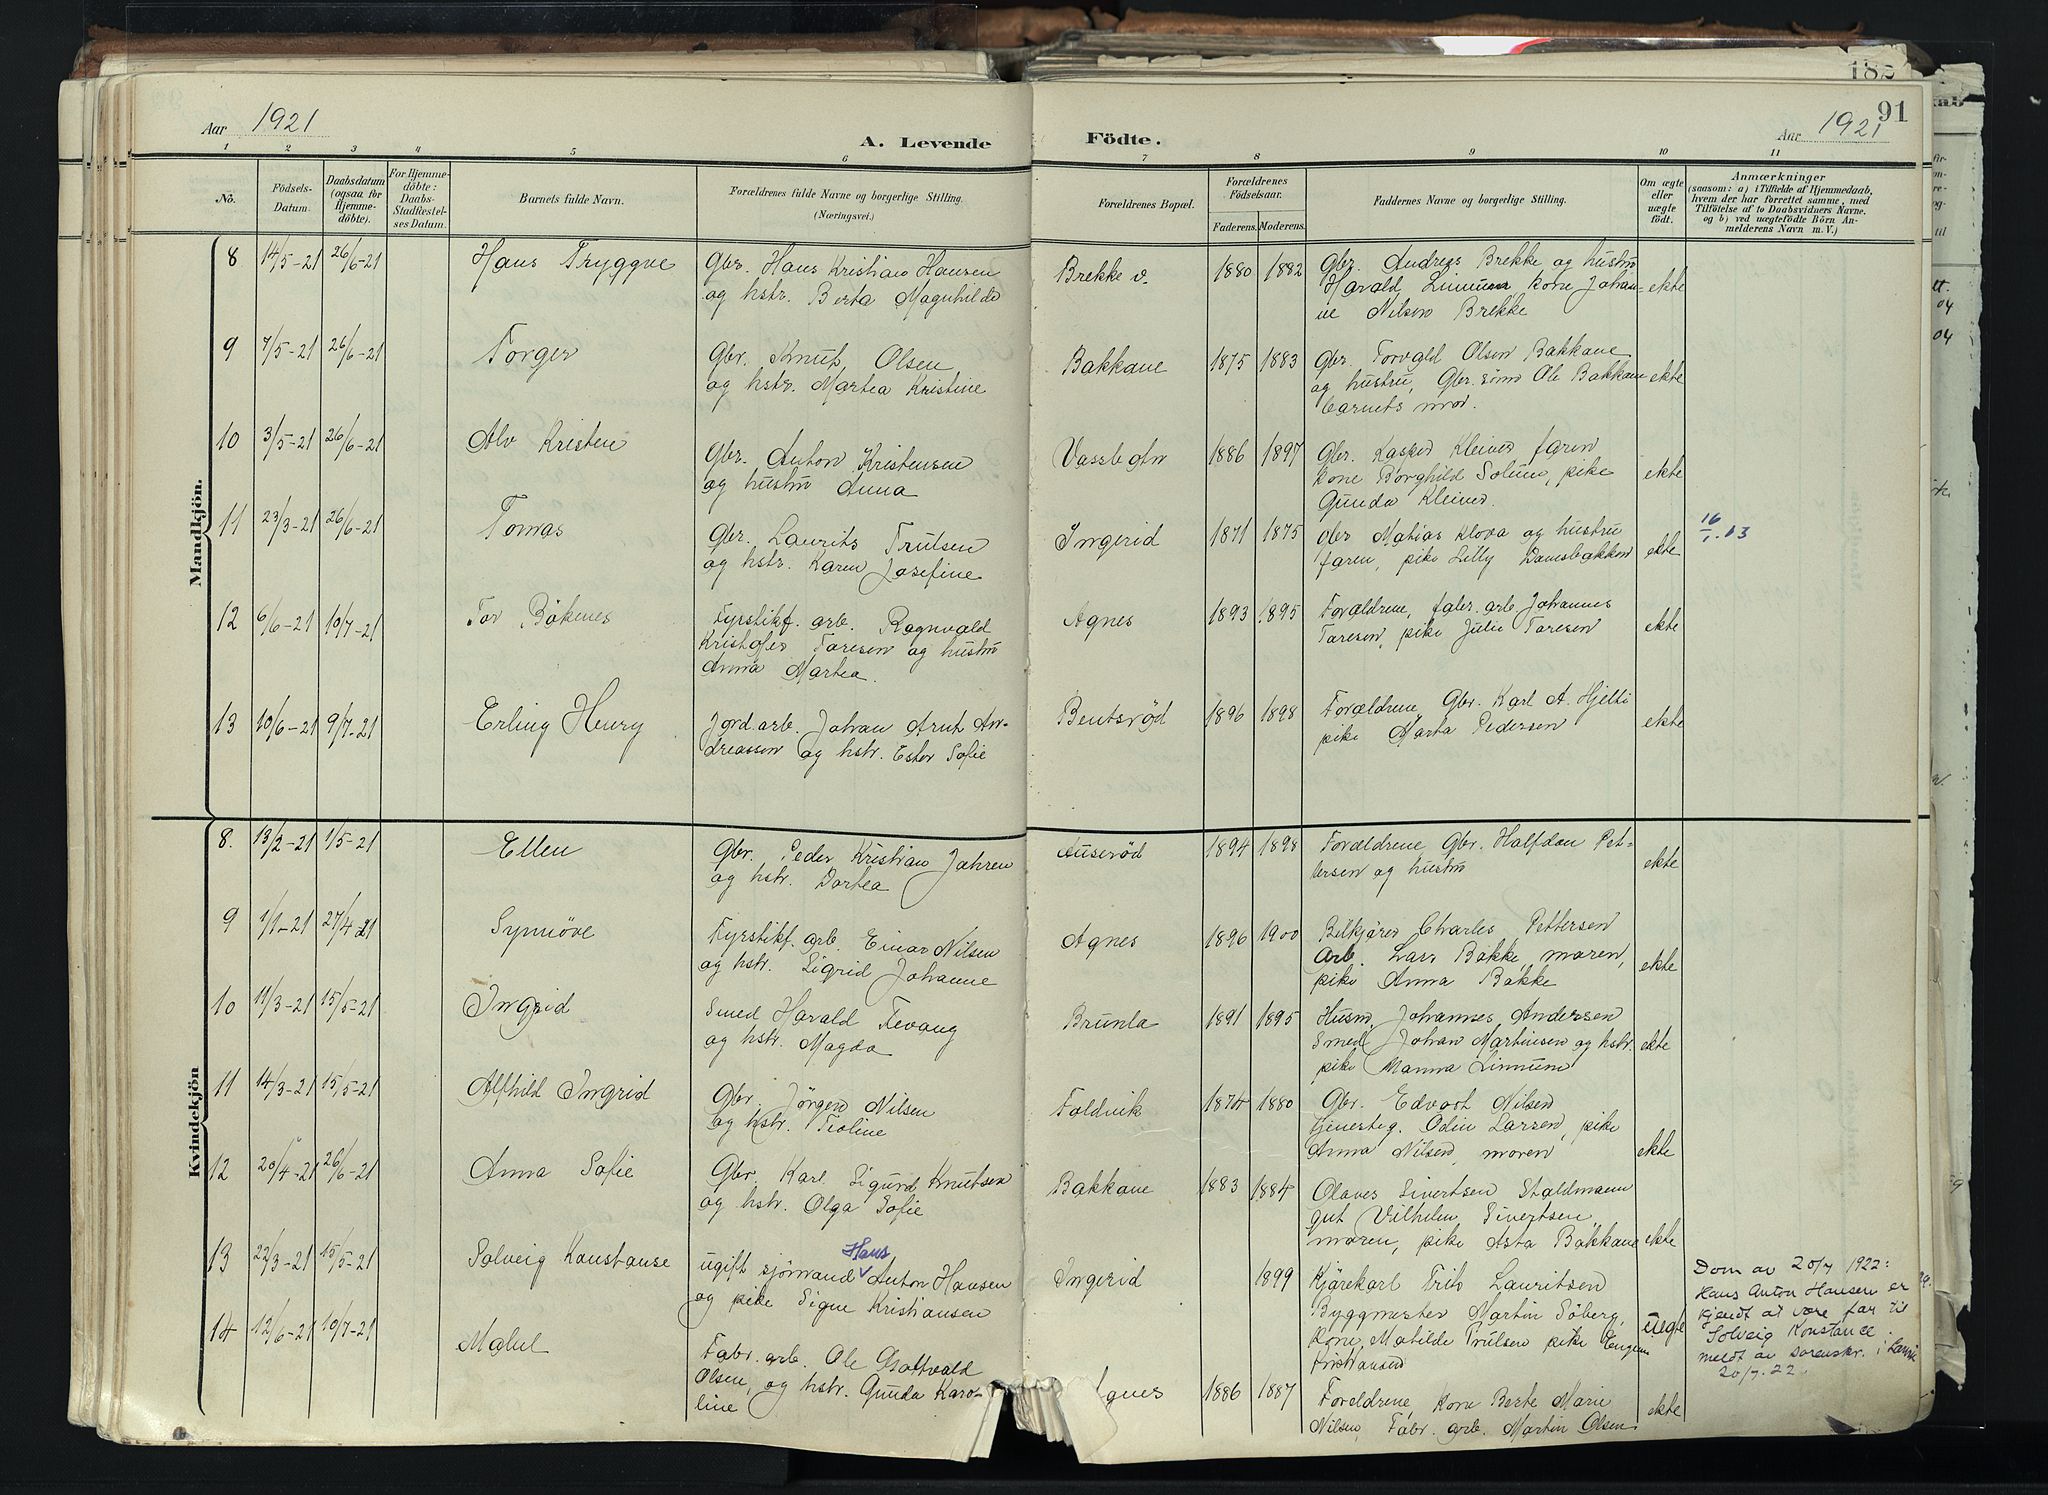 182
91
Aar 1921
A. Levende Födte.
Aar 1921
1 2 3 4 5 6 7 8 9 10 11
No.
Födsels-
Datum.
Daabsdatum
(ogsaa for
Hjemme-
döbte).
For Hjemme-
döbte:
Daabs-
Stadfestel-
ses Datum.
Barnets fulde Navn.
Forældrenes fulde Navne og borgerlige Stilling.
(Næringsvei.)
Forældrenes Bopæl.
Forældrenes
Födselsaar.
Faderens. Moderens.
Faddernes Navne og borgerlige Stilling.
Om ægte
eller
uægte
födt.
Anmærkninger
(saasom: a) i Tilfælde af Hjemmedaab,
hvem der har forrettet samme, med
Tilföielse af to Daabsvidners Navne,
og b) ved uægtefödte Börn An-
melderens Navn m. V.)
Mandkjön.
8 14/5-21 26/6-21 Hans Tryggve
Gbr. Hans Kristian Hansen
og hstr. Berta Magnhilde
Brekke v. 1880 1882
Gbr. Andreas Brekke og hustru
Harald Linnum, kone Johan-
ne Nilsen Brekke
ekte
9 7/5-21 26/6-21 Torger
Gbr. Knut Olsen
og hstr. Martea Kristine
Bakkane 1875 1883
Gbr. Torvald Olsen Bakkane
og hustru, Gbr. sönn Ole Bakkane
barnets mor.
ekte
10 3/5-21 26/6-21 Alv Kristen
Gbr. Anton Kristensen
og hustru Anna
Vassbotn 1886 1897
Gbr. Kasper Kleiver faren
kone Borghild Solum, pike
Gunda Kleiver.
ekte
11 23/3-21 26/6-21 Tomas
Gbr. Laurits Trulsen
og hstr. Karen Josefine
Ingerid 1871 1875
Gbr Matias Klova og hustru
faren, pike Lilly Damsbakken
ekte
16/1.63
12 6/6-21 10/7-21 Tor Bökenes
Fyrstikf. arb. Ragnvald
Kristofer Taresen og hustru
Anna Martea.
Agnes 1893 1895
Forældrene, fabr. arb. Johannes
Taresen, pike Julie Taresen
ekte
13 10/6-21 9/7-21 Erling Henry
Jord.arb. Johan Arnt An-
dreassen og hstr. Ester Sofie
Bentsrød 1896 1898
Forældrene, Gbr. Karl A. Hjelte
pike Marta Pedersen
ekte
Kvindekjön
8. 13/2-21 1/5-21 Ellen
Gbr. Peder Kristian Jahren
og hstr. Dortea
Auserød 1894 1898
Forældrene Gbr. Halfdan Pet-
tersen og hustru
ekte
9 1/1-21 27/4 21 Synnöve
Fyrstikf. arb. Einar Nilsen
og hstr. Sigrid Johanne
Agnes 1896 1900
Bilkjører Charles Pettersen
Arb. Lars Bakke moren,
pike Anna Bakke
ekte
10 11/3-21 15/5-21 Ingrid
Smed Harald Fevang
og hstr. Magda
Brunla 1891 1895
Husm. Johannes Andersen
Smed Johan Martinsen og hstr.
pike Manna Linnum
ekte
11 14/3-21 15/5-21 Alfhild Ingrid
Gbr. Jörgen Nilsen
og hstr. Teoline
Foldvik 1874 1880
Gbr. Edvart Nilsen
tjenesteg. Odin Larsen, pike
Anna Nilsen, moren
ekte
12 20/4-21 26/6-21 Anna Sofie
Gbr. Karl Sigurd Knutsen
og hstr. Olga Sofie
Bakkane 1883 1884
Olaves Sivertsen Staldmann
gut Vilhelm Sivertsen
moren, pike Asta Bakkane
ekte
13 22/3-21 15/5-21 Solveig Konstanse
ugift sjömand Hans Anton Hansen
og pike Signe Kristiansen
Ingerid 1899
Kjørekarl Frits Lauritsen
Byggmester Martin Söberg,
kone Matilde Trulsen pike
Kristiansen
uegte
Dom av 20/7 1922:
Hans Anton Hansen er
kjendt at være far til
Solveig Konstance
meldt av sorenskr. i Larvik
20/7.22
14 12/6-21 10/7-21 Mabel
Fabr. arb. Ole Gottvald
Olsen, og hstr. Gunda Karo-
line
Agnes 1886 1887
Foreldrene, kone Berte Marie
Nilsen, Fabr. arb. Martin Olsen
ekte